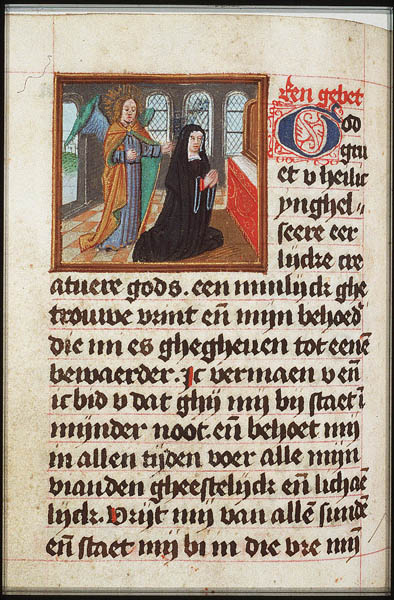 Een gebet
God
gru
et v heilic
ynghel
seere eer
lijcke cre
atuere gods. een minlijck ghe
trouwe vrint en̄ mijn behoed
die mi es ghegheuen tot eenē
bewaerder. Ic vermaen v en̄
ic bid v dat ghij mij bij staet ī
mijnder noot. en̄ behoet mij
in allen tijden voer alle mijn
vianden gheestelijck en̄ lichaē
lijck. Vrijt mij van allē sundē
en̄ staet mij bi in die vre mij